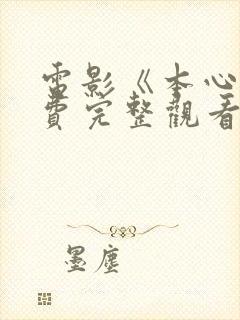 電影《本心
費完整觀看
墨塵